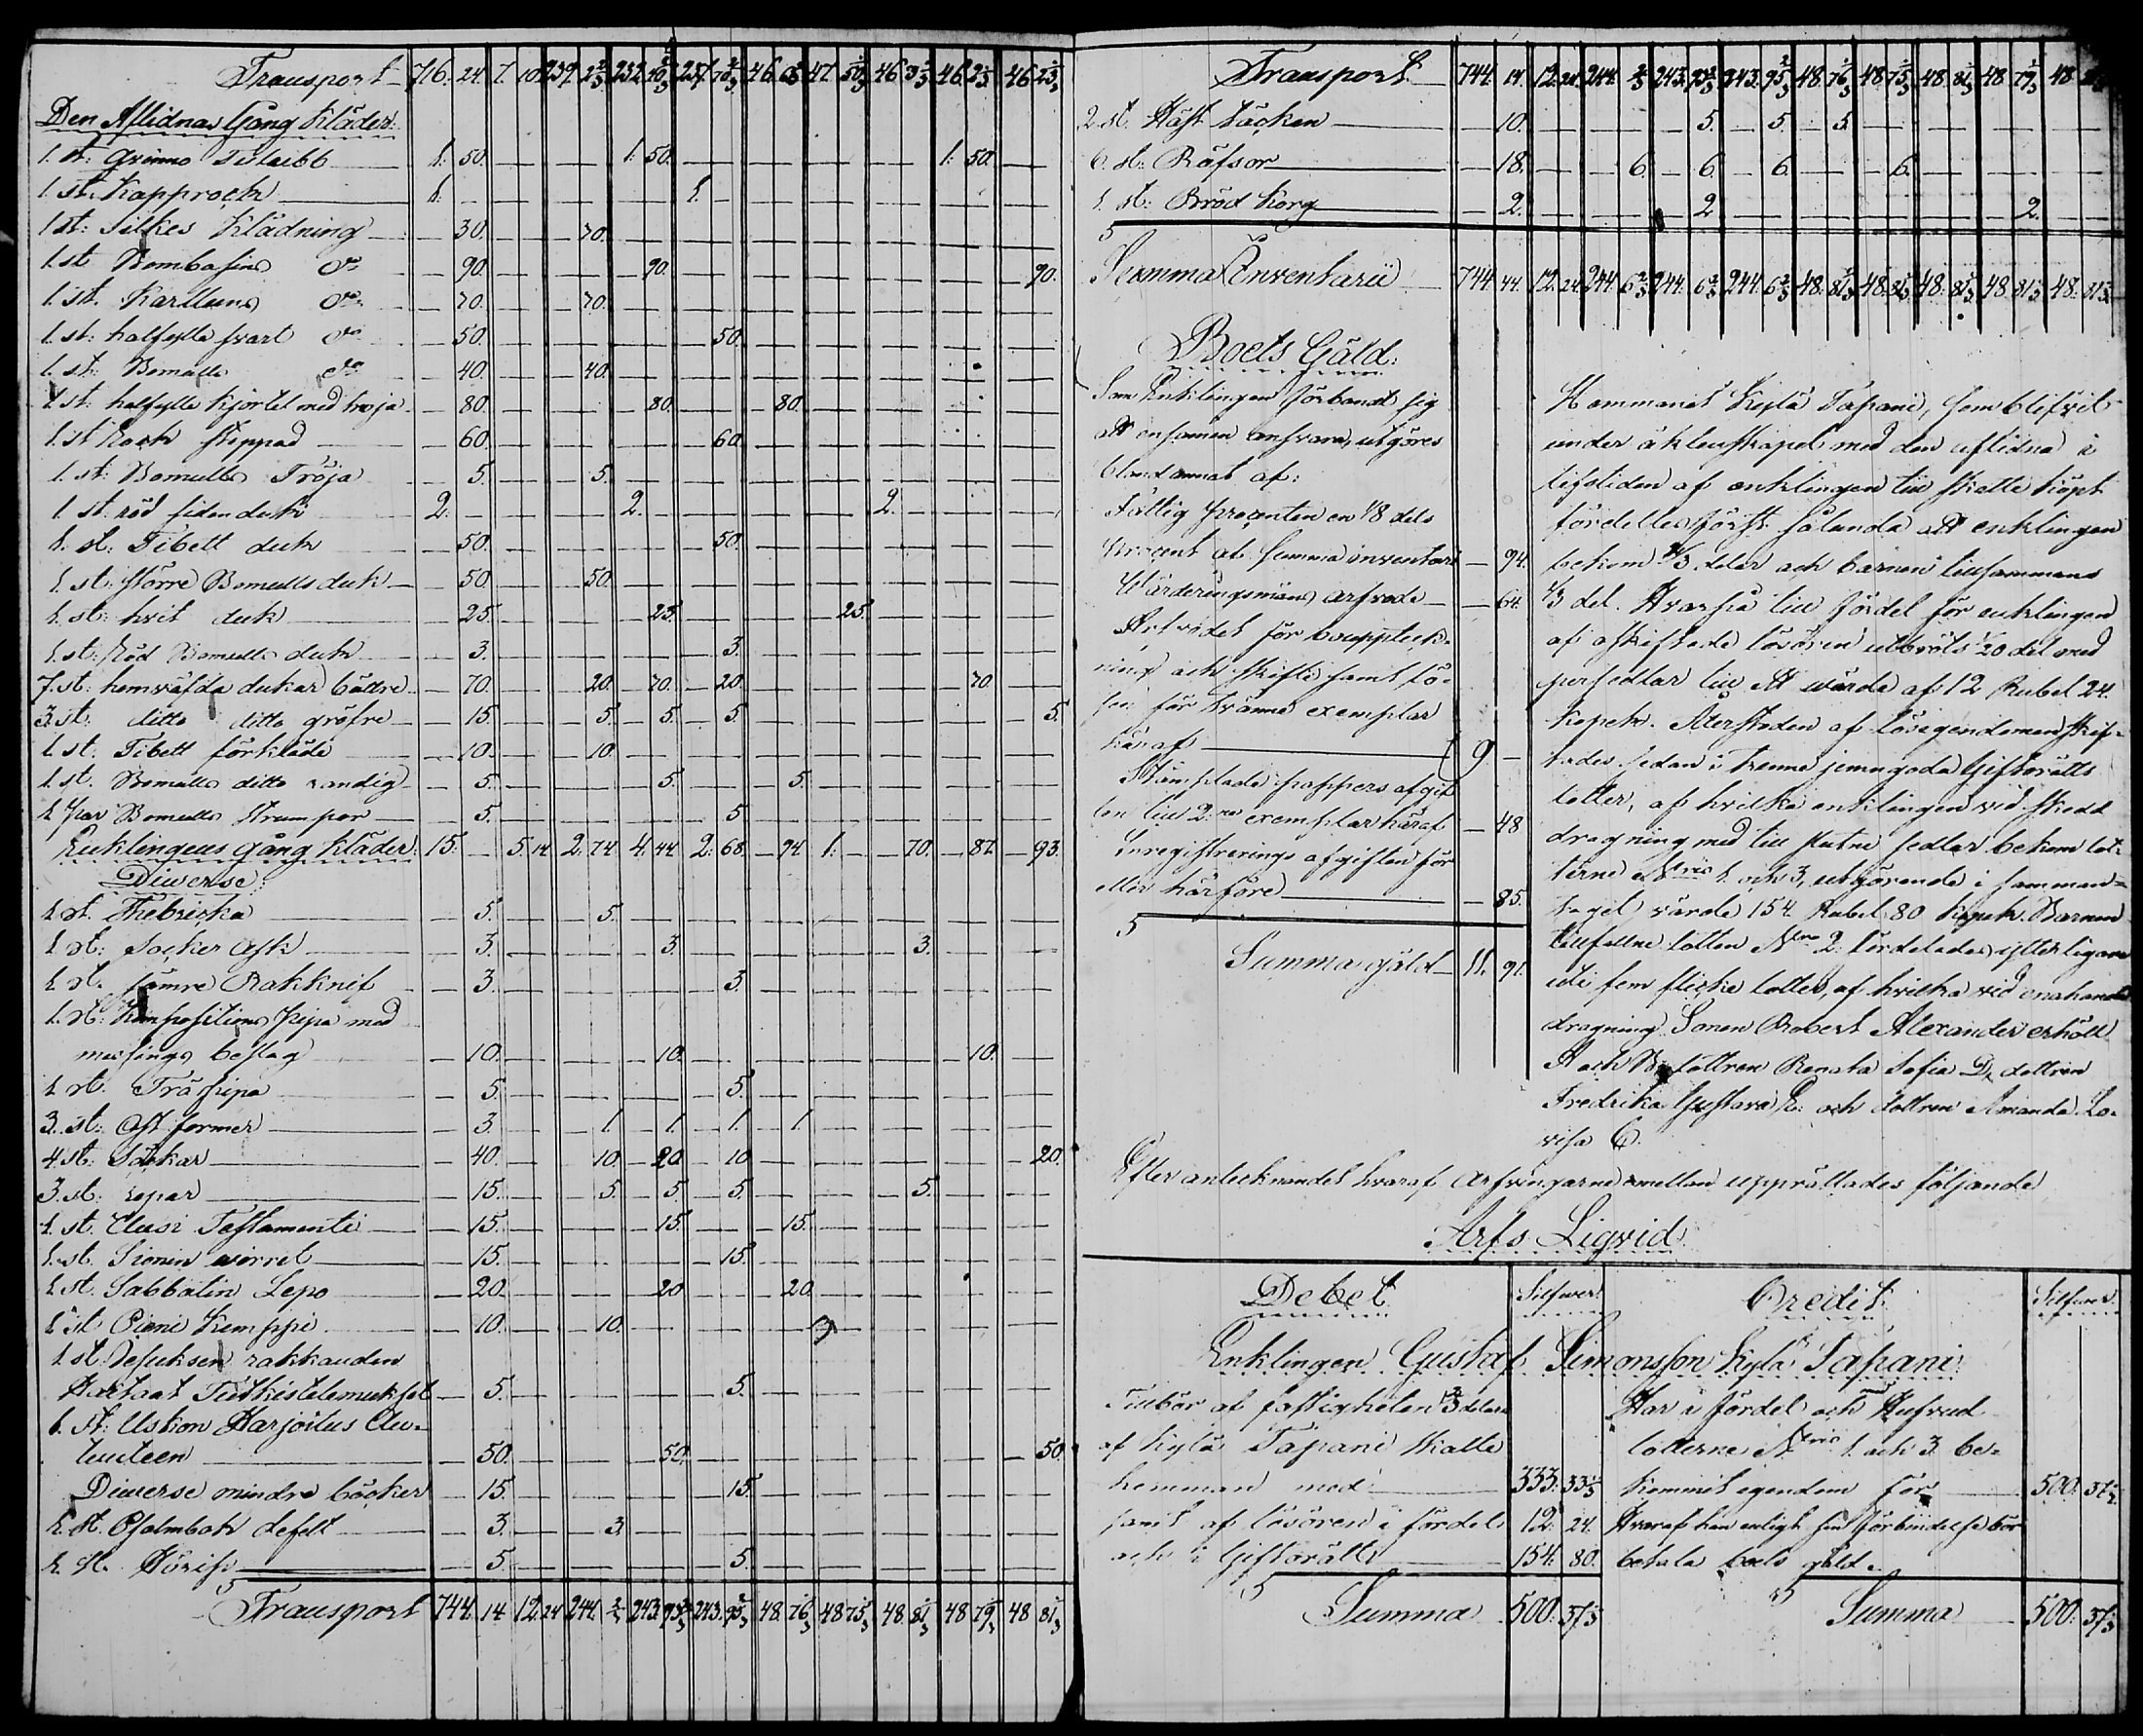 Transport 716. 24. 7. 10. 239. 2 2/3 232. 70 2/3 237. 70 2/3 46. 47. 46. 3 1/3 46. 2 1/3 46 21 1/3
Den Aflidnas Gång Kläder:
1. st: 1. 50. — — — — 1. 50. — — — — — — — — 1. 50. — —
1. st. Kapprock 1. — — — — — — — 1. — — — — — — — — — —
1 st: Silkes Klädning — 30. — — — 70. — — — — — — — — — — — — — —
1. st Bombasins do — 90. — — — — — 90. — — — — — — — — — — — 90.
1. st. Kartuns do — 70. — — — 70. — — — — — — — — — — — — — —
1. st: halfylle svart do — 50. — — — — — — — 50. — — — — — — — — — —
1. st: Bomulls do — 40. — — — 40. — — — — — — — — — — — — — —
1. st: halfylle Kjortel med tröja — 80. — — — — — 80. — — — 80. — — — — — — — —
1. st Rock — 60. — — — — — — — 60. — — — — — — — — — —
1. st: Bomulls Tröja — 5. — — — 5. — — — — — — — — — — — — — —
1. st. röd siden duk 2. — — — — — 2. — — — — — — — 2. — — — — —
1. st: Tibett duk — 50. — — — — — — — 50. — — — — — — — — — —
1. st: större Bomulls duk — 50. — — — 50. — — — — — — — — — — — — — —
1. st: hvit duk — 25. — — — — — 25. — — — — — 25. — — — — — —
1. st: Röd Bomulls duk — 3. — — — — — — — 3. — — — — — — — — — —
7. st: hemväfda dukar bättre — 70. — — — 20. — 70. — 20 — — — — — — — 70. — —
3. st: ditto ditto gröfre — 15. — — — 5. — 5. — 5. — — — — — — — — — 5.
1. st. Tibett förkläde — 10. — — — 10. — — — — — — — — — — — — — —
1. st. Bomulls ditto randig — 5. — — — — — 5. — — — 5. — — — — — — — —
1 par Bomulls Strumpor — 5. — — — — — — — 5 — — — — — — — — — —
Enklingens Gång Kläder 15. — 5. 14 2. 74 4. 44 2. 68. — 94 1. — — 70. — 87. — 93.
Diverse:
1. st. — 5. — — — 5. — — — — — — — — — — — — — —
1. st: Socker Ask — 3. — — — — — 3. — — — — — — — 3. — — — —
1. st. sämre Rakknif — 3. — — — — — — — 3. — — — — — — — — — —
1. st: Kompositions Pipa med
messings beslag — 10. — — — — — 10. — — — — — — — — — 10. — —
1 st. Träpipa — 5. — — — — — — — 5. — — — — — — — — — —
3. st: Ost former — 3. — — — 1. — 1. — 1. — 1. — — — — — — — —
4. st: Säckar — 40. — — — 10. — 20 — 10 — — — — — — — — — 20.
3. st: — 15. — — — 5. — 5. — 5. — — — — — 5. — — — —
1. st. Uusi Testamenti — 15. — — — — — 15. — — — 15. — — — — — — — —
1. st. Sionin wirret — 15. — — — — — — — 15. — — — — — — — — — —
1 st. Sabbatin Lepo — 20. — — — — — 20 — — — 20. — — — — — — — —
1 st Pieni Kemppi — 10. — — — 10. — — — — — — — — — — — — — —
1. st. Jesuksen rakkauden
Hartaat Tutkistelemukset — 5. — — — — — — — 5. — — — — — — — — — —
1. st: Uskon Harjoitus Au-
tuuteen — 50. — — — — — 50. — — — — — — — — — — — 50.
Diverse mindre böcker — 15. — — — — — — — 15. — — — — — — — — — —
1. st. Psalmbok defekt — 3. — — — 3. — — — — — — — — — — — — — —
1. st. — 5. — — — — — — — 5. — — — — — — — — — —
Transport 744. 14. 12. 24 244. 2/3 243. 93 2/3 243. 95 2/3 48. 76 1/3 48 75 1/3 48. 81 1/3 48 79 1/3 48 81 1/3
Transport 744. 14. 12. 24. 244. 2/3 243. 93 2/3 243. 95 2/3 48. 76 1/3 48 75 1/3 48. 81 1/3 48 79 1/3 48
2. st. Häst täcken — 10. — — — — — 5. — 5. — 5. — — — — — — — —
6. st: Räfsor — 18. — — — 6. — 6. — 6. — — — 6. — — — — — —
1. st: Bröd Korg — 2. — — — — — 2. — — — — — — — — — 2. — —
Summa Inventarii 744. 44. 12. 24. 244. 6 2/3 244. 6 2/3 244. 6 2/3 48. 81 1/3 48. 81 1/3 48. 81 1/3 48 81 1/3 48. 81 1/3
Boets Gäld:
Som Enklingen förbandt sig
att ensamen ansvara, utgöres
bland annat af:
Fattig procenten en 1/8 dels
procent af summa inventarii — 94.
Wärderingsmäns arfvode — 64.
Arfvodet för bouppteck-
ning och skifte samt lö-
sen för tvänne exemplar
häraf 9 —
Stämplade pappers afgif
ten till 2:ne exemplar häraf — 48
Inregistrerings afgiften för
eller härföre — 85.
Summa gäld 11. 91.
Hemmanet Kylä Tapani, som blifvit
under äktenskapet med den aflidna i
lifstiden af enklingen till Skatte köpt
fördeltes först sålunda att enklingen
bekom 2/3 delar och barnen tillsammans
1/3 del. Hvarpå till fördel för enklingen
af oskiftade lösören utbröts 1/20 del med
persedlar till ett wärde af 12 Rubel 24.
Kopek. Återstoden af lösegendomen skif-
tades sedan i trenne jemngoda Giftorätts
lotter, af hvilka enklingen vid skedd
dragning med till slutne sedlar bekom lot-
terne N:ris 1. och 3, utgörande i samman-
taget värde 154. Rubel 80 Kopek. Barnen
tillfallne lotten N:ro 2. fördelades ytterligare
uti fem flicke lotter, af hvilka vid enahanda
dragning Sonen Robert Alexander erhöll
A och B, dottren Renata Sofia D, dottren
Fredrika Gustava E. och dottren Amanda Lo-
visa C.
Efter antecknandet hvaraf Arfvingarne emellan upprättades följande
Arfs Liqvid
Debet Silfwer. Credit Silfwer
Enklingen Gustaf Simonsson Kylä Tapani
Tillbör af fastigheten 2/3 delar
af Kylä Tapani Skatte
hemman med 333. 33 1/3
samt af lösören i fördel 12. 24.
och i Giftorätt 154. 80.
Summa 500. 37 1/3
Har i fördel och
lotterne N:ris 1. och 3 be-
kommit egendom för 500. 37 1/3
Hvaraf han enligt sin förbindelse bör
betala boets gäld.
Summa 500. 37 1/3